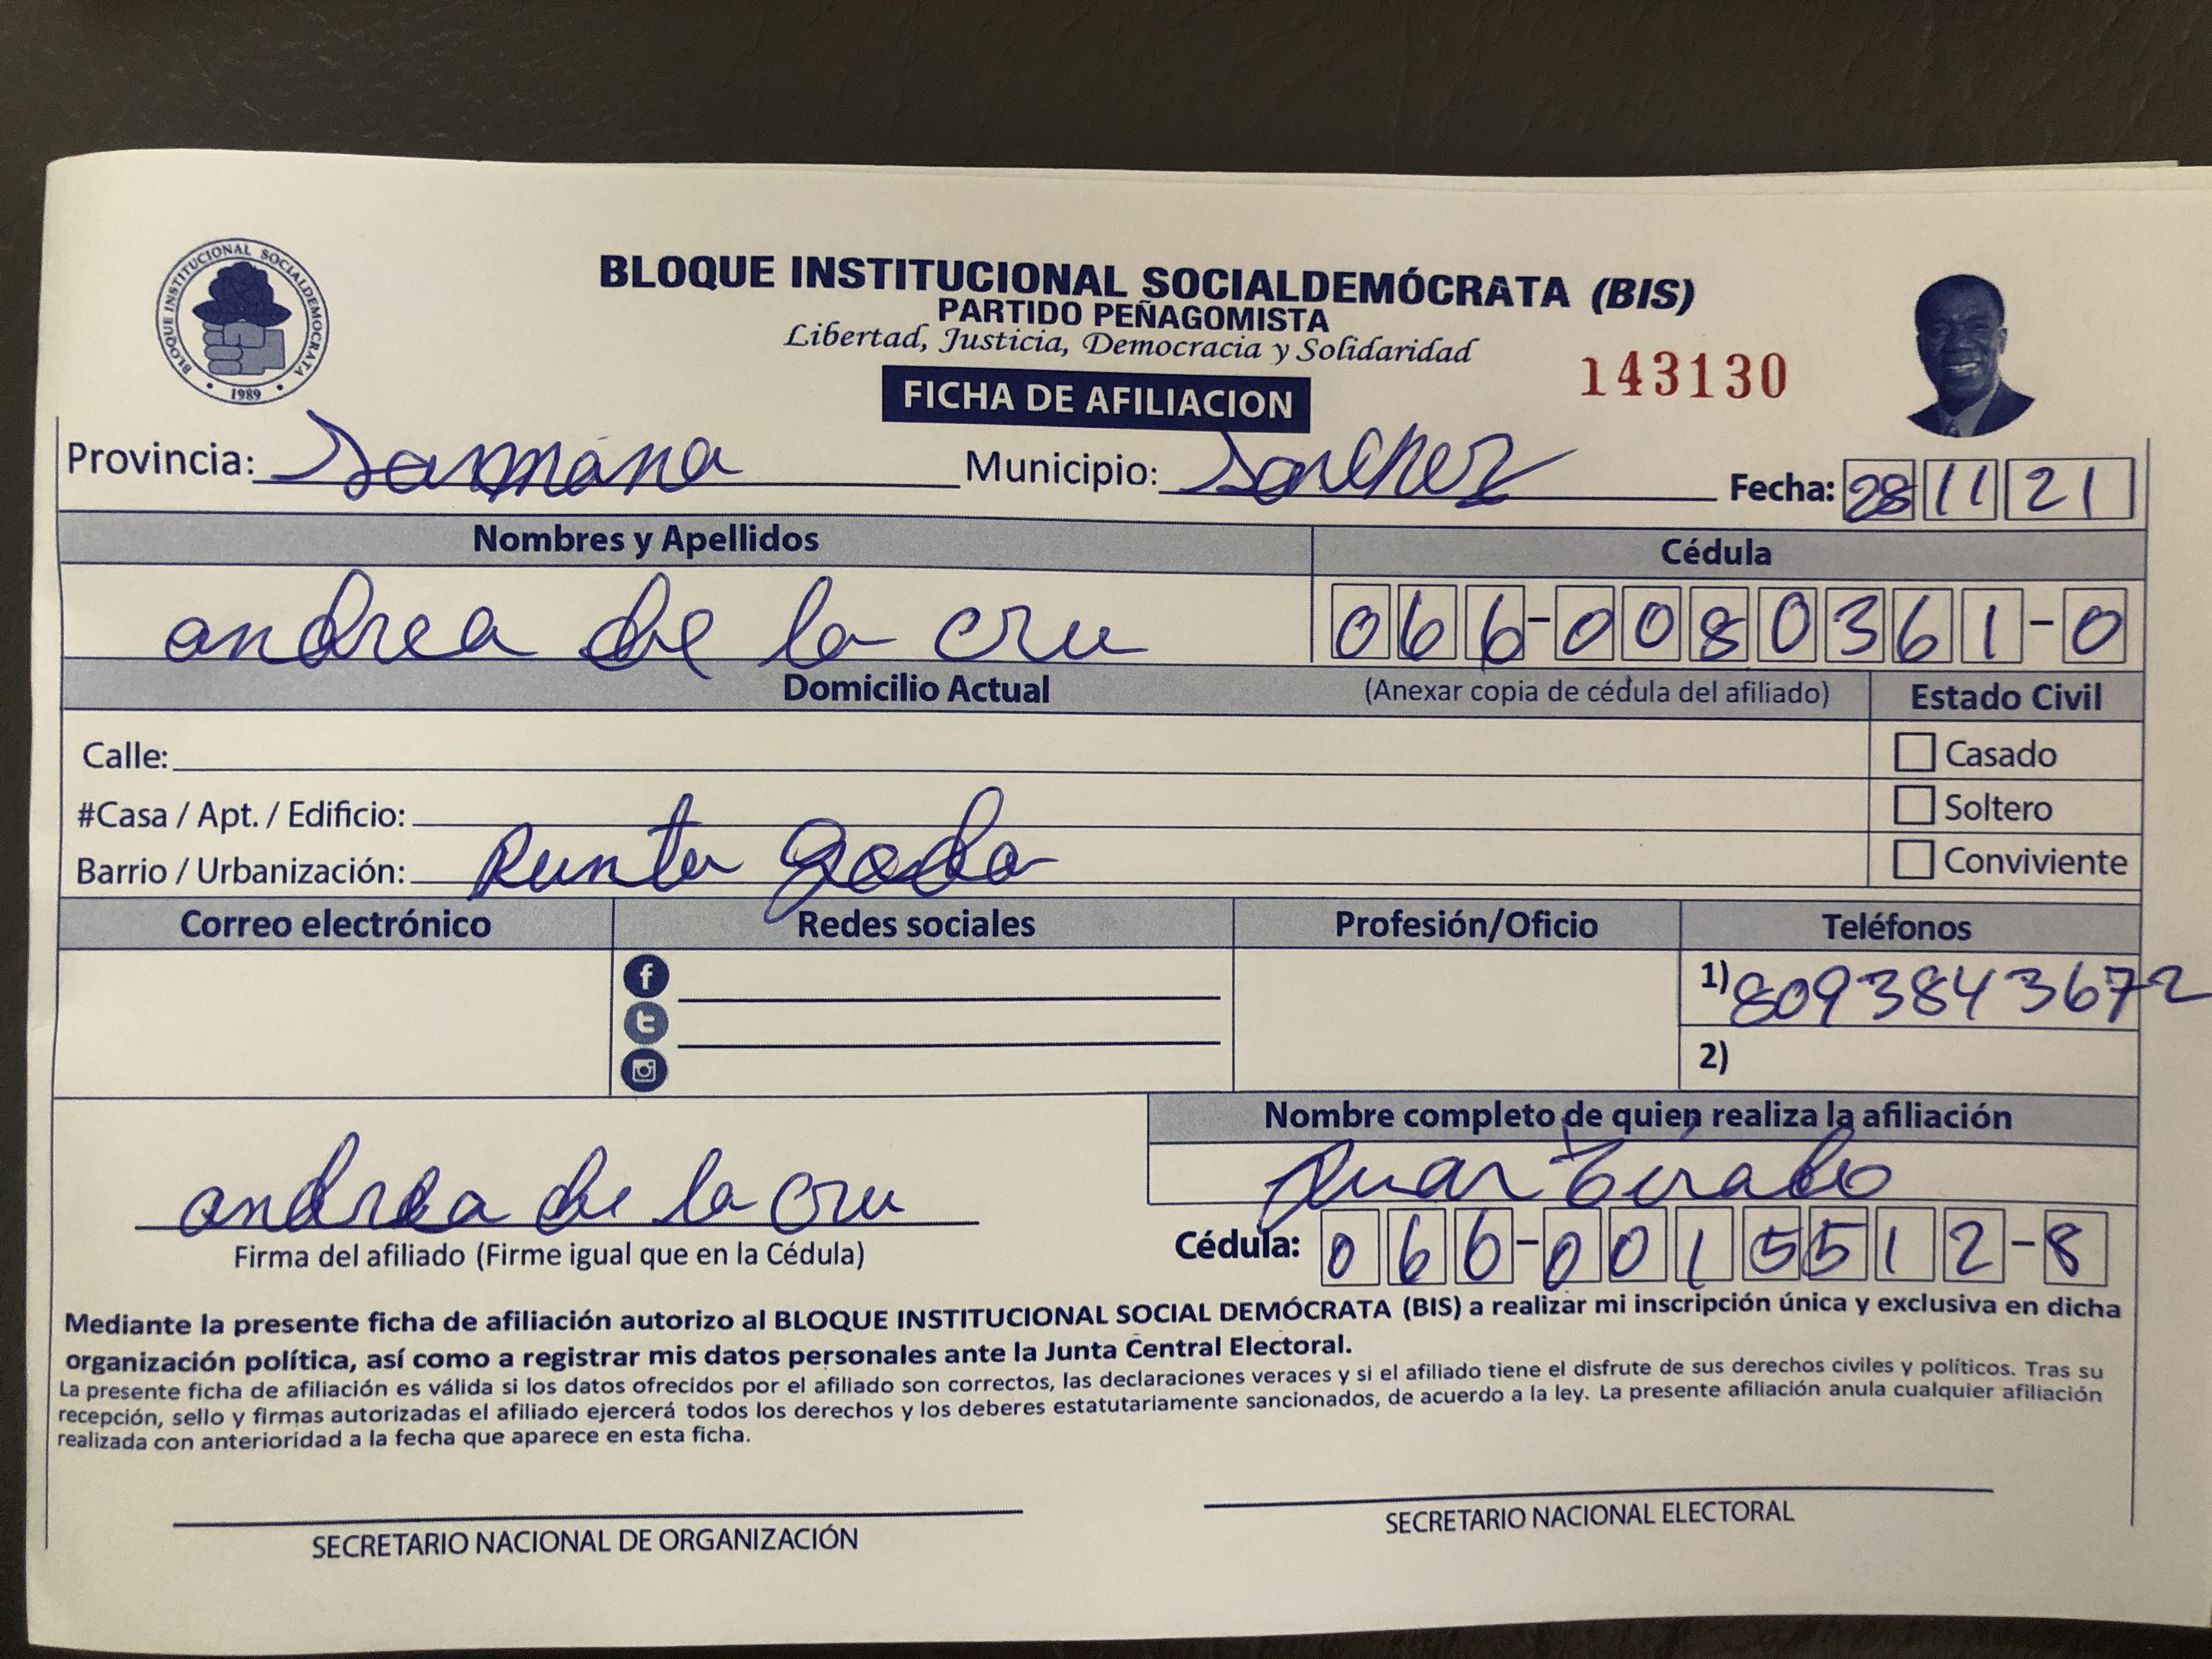 BLOQUE INSTITUCIONAL SOCIALDEMOCRATA
1989
BLOQUE INSTITUCIONAL SOCIALDEMÓCRATA (BIS)
PARTIDO PEÑAGOMISTA
Libertad, Justicia, Democracia y Solidaridad
143130
FICHA DE AFILIACION
Provincia: Samana Municipio: Sanchez Fecha: 28 11 21
Nombres y Apellidos Cédula
andrea de la cru 066-0080361-0
Domicilio Actual (Anexar copia de cédula del afiliado) Estado Civil
Calle: Casado
#Casa / Apt. / Edificio: Soltero
Barrio / Urbanización: Punta goda Conviviente
Correo electrónico Redes sociales Profesión/Oficio Teléfonos
1) 8093843672
2)
Nombre completo de quien realiza la afiliación
andrea de la cru
Firma del afiliado (Firme igual que en la Cédula)
Cédula: 066-0015512-8
Mediante la presente ficha de afiliación autorizo al BLOQUE INSTITUCIONAL SOCIAL DEMÓCRATA (BIS) a realizar mi inscripción única y exclusiva en dicha
organización política, así como a registrar mis datos personales ante la Junta Central Electoral.
La presente ficha de afiliación es válida si los datos ofrecidos por el afiliado son correctos, las declaraciones veraces y si el afiliado tiene el disfrute de sus derechos civiles y políticos. Tras su
recepción, sello y firmas autorizadas el afiliado ejercerá todos los derechos y los deberes estatutariamente sancionados, de acuerdo a la ley. La presente afiliación anula cualquier afiliación
realizada con anterioridad a la fecha que aparece en esta ficha.
SECRETARIO NACIONAL DE ORGANIZACIÓN
SECRETARIO NACIONAL ELECTORAL